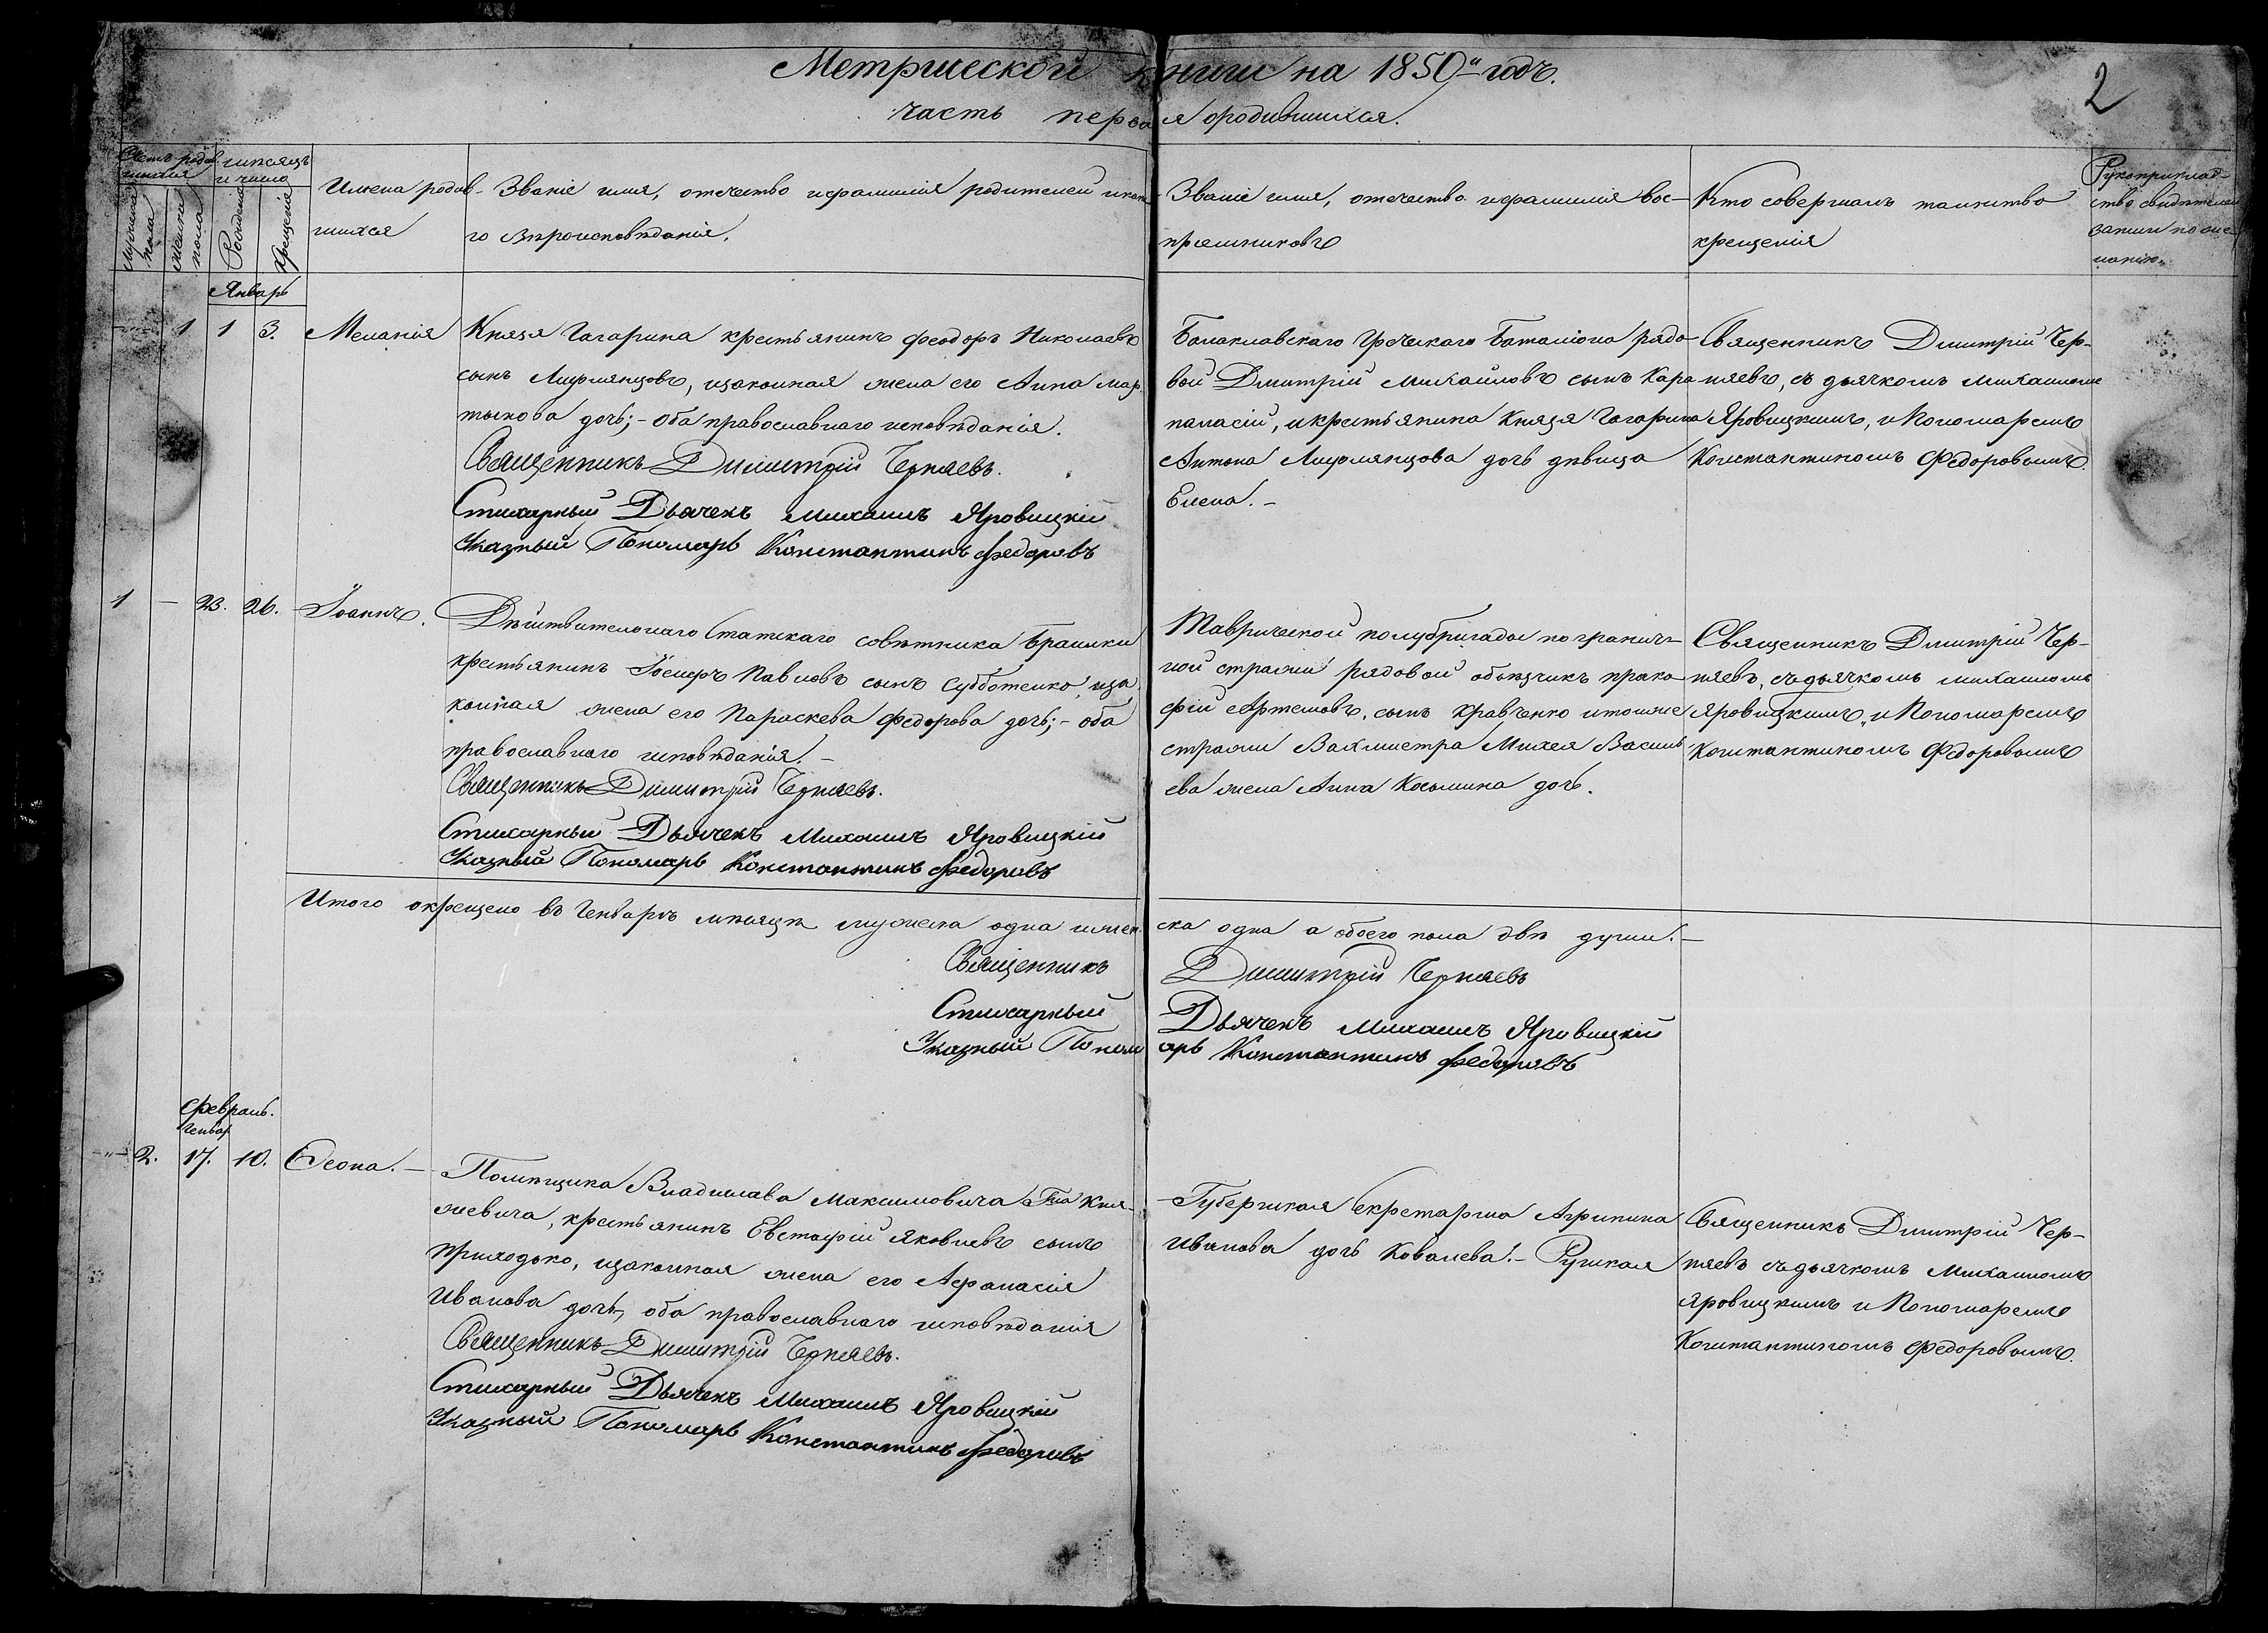 Метрической книги на 1850й годъ.
2
часть первая о родившихся.
Счетъ родив-
шихся
мѣсяцъ
и число
Мужеска
пола
Женска
пола
Рожденія
Крещенія
Имена родив-
шихся
Званіе имя, отечество и фамилія родителей и како-
го вѣроисповѣданія.
Званіе имя, отечество и фамилія вос-
пріемниковъ
Кто совершалъ таинство
крещенія
Рукоприклад-
ство свидѣтелей
записи по же-
ланію.
Январь
1 1 3. Меланія
Князя Гагарина крестьянинъ Феодоръ Николаевъ
сынъ Лифлянцовъ, и законная жена его Анна Мар-
тынова дочь; - оба православнаго исповѣданія.
Священникъ Димитрій Черняевъ.
Стихарный Дьячекъ Михаилъ Яровицкій
Указный Пономарь Константинъ Федоровъ
Балаклавскаго Греческаго баталіона рядо-
вой Дмитрій Михайловъ сынъ Кара-
напасій, и крестьянина Князя Гагарина
Антона Лифлянцова дочь дѣвица
Елена. -
Священникъ Дмитрій Чер-
няевъ, съ дьячкомъ Михаиломъ
Яровицкимъ, и Пономаремъ
Константиномъ Федоровымъ.
1 - 23. 26. Іоаннъ.
Дѣйствительнаго Статскаго совѣтника Браилки
крестьянинъ Іосифъ Павловъ сынъ Субботенко, и за-
конная жена его Параскева Федорова дочь; - оба
православнаго исповѣданія. -
Священникъ Димитрій Черняевъ.
Стихарный Дьячекъ Михаилъ Яровицкій
Указный Пономарь Константинъ Федоровъ
Таврической полубригады погранич-
ной стражи рядовой объѣзчикъ проко-
фій Артемовъ, сынъ Кравченко и тойже
стражи Вахмистра Михея Василь
ева жена Анна Косьмина дочь.
Священникъ Дмитрій Чер-
няевъ, съ дьячкомъ Михаиломъ
Яровицкимъ, и Пономаремъ
Константиномъ Федоровымъ
Итого окрещено въ Генварѣ мѣсяцѣ мужеска одна и женска одна а обоего пола двѣ души. -
Священникъ Димитрій Черняевъ
Стихарный Дьячекъ Михаилъ Яровицкій
Указный Пономарь Константинъ Федоровъ
Февраль.
Генвар
-"- 2. 17. 10. Ѳеона. -
Помѣщика Владислава Максимовича Кня-
жевича, крестьянинъ Евстафій Яковлевъ сынъ
Приходько, и законная жена его Афанасія
Иванова дочь, оба православнаго исповѣданія
Священникъ Димитрій Черняевъ.
Стихарный Дьячекъ Михаилъ Яровицкій
Указный Пономарь Константинъ Федоровъ
Губернская секретарша Агрипина
Иванова дочь Ковалева. -
Священникъ Дмитрій Чер-
няевъ съ дьячкомъ Михаиломъ
Яровицкимъ и Пономаремъ
Константиномъ Федоровымъ.